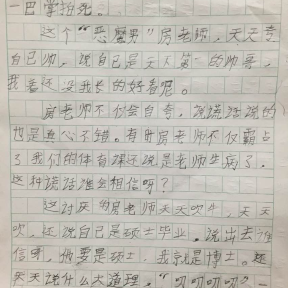 一巴掌拍死。
这个“恶魔男”房老师，天天夸
自己帅，说自己是天下第一的帅哥，
我看还没我长的好看呢。
房老师不仅会自夸，说谎话说的
也是真心不错。有时房老师不仅霸占
了我们的体育课还说是老师生病了，
这种谎话谁会相信呀？
这讨厌的房老师天天吹牛，天天
吹，还说自己是硕士毕业，说出去谁
信呀，他要是硕士，我就是博士。还
天天说什么大道理，“叨叨叨叨”一